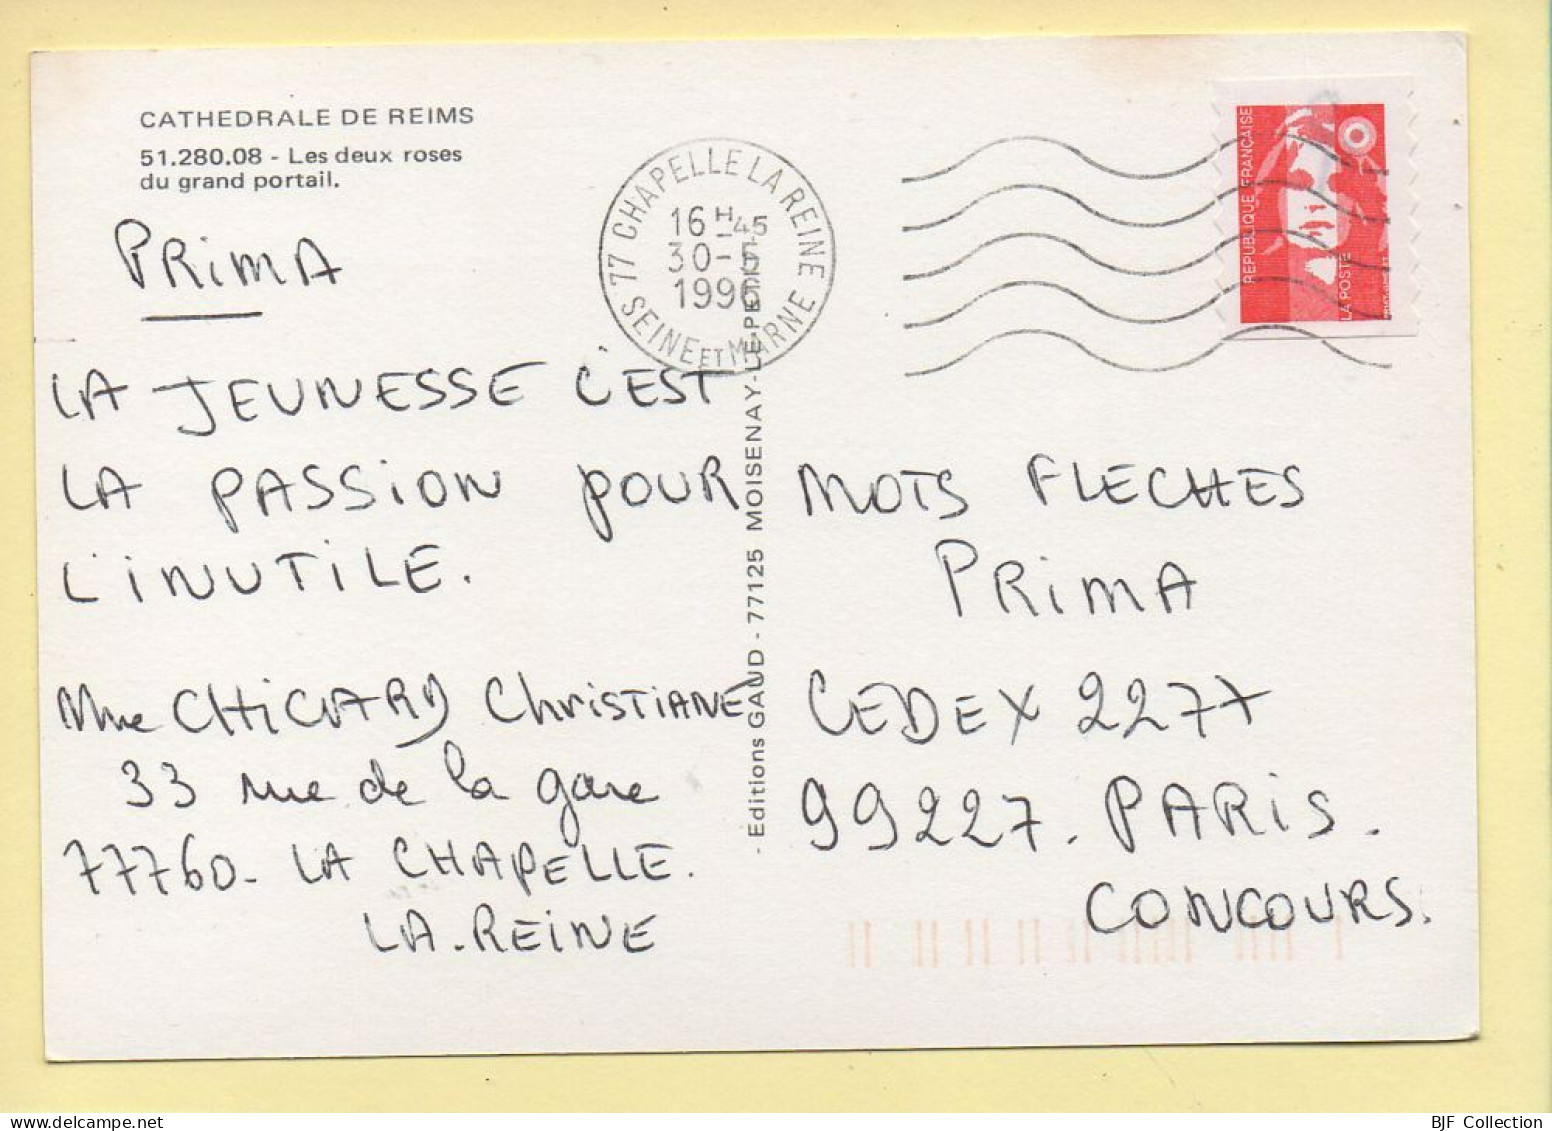 CATHEDRALE DE REIMS
51.280.08 - Les deux roses
du grand portail.
PRiMA
LA JEUNESSE C'EST
LA PASSiON POUR
L'iNUTiLE.
Mme CHiCARD ChrisTiANE
33 rue de la gare
77760 - LA CHAPELLE.
LA.REiNE
77 CHAPELLE LA REINE
16 H 45
30-5
1996
SEINE ET MARNE
- Editions GAUD - 77125 MOISENAY-LE-PETIT-
REPUBLIQUE FRANÇAISE
LA POSTE
MOTS FLECHES
PRiMA
CEDEX 2277
99227. PARiS.
CONCOURS.
BJF Collection